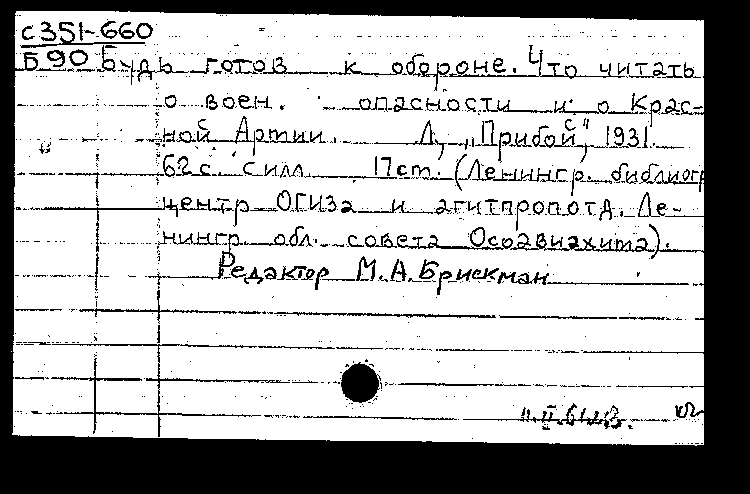 с351-660
Б90 Будь готов к обороне. Что читать
о воен. опасности и о Крас-
ной Артии. Л., „Прибой", 1931.
62с. с илл. 17ст. (Ленингр. библиогр
центр ОГИЗа и агитпропотд. Ле-
нингр. обл. совета Осоавиахита).
Редактор М.А.Брискман